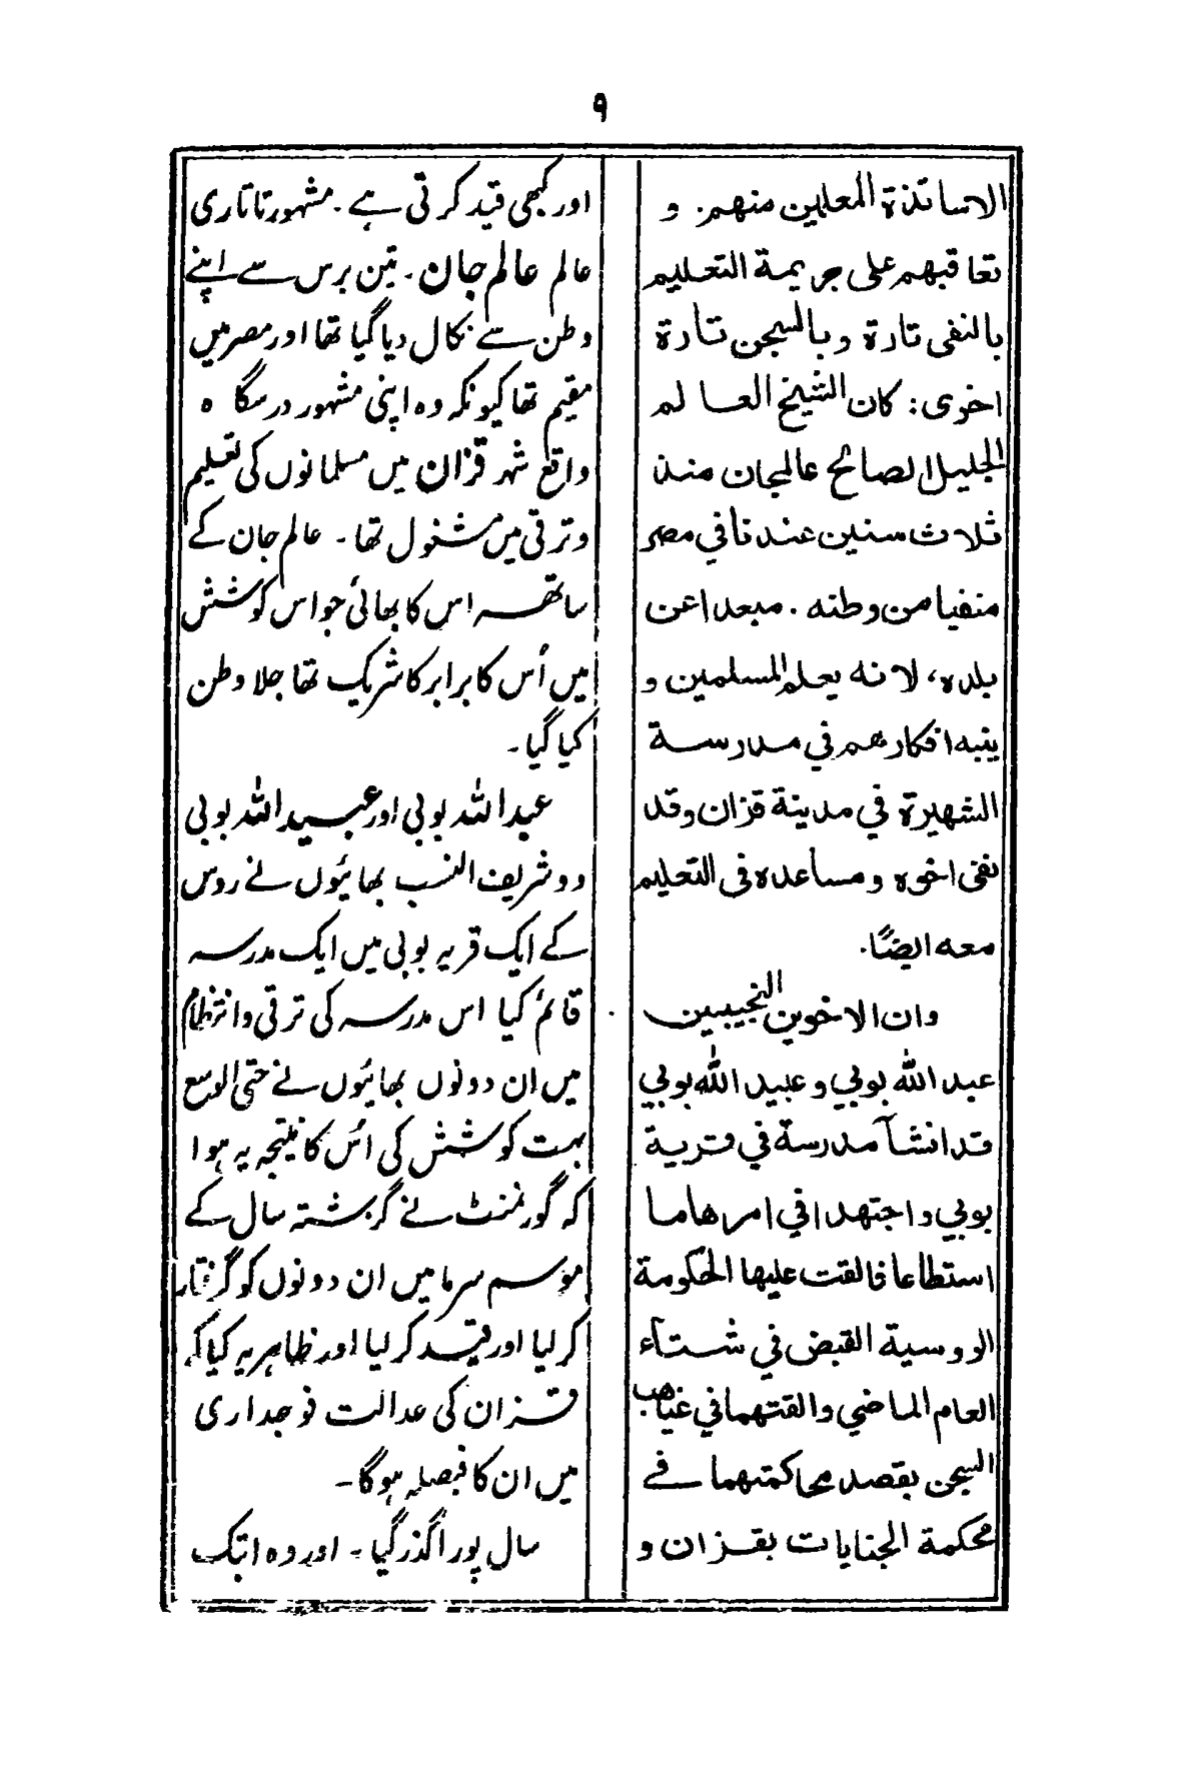 ٩
الاساتذة المعلمين منهم. و
تعاقبهم على جريمة التعليم
بالنفى تارة وبالسجن تارة
اخرى: كان الشيخ العالم
الجليل الصالح عالمجان منذ
ثلاث سنين عندنا في مصر
منفيا من وطنه. مبعدا عن
بلده، لانه يعلم المسلمين و
ينبه افكارهم في مدرسة
الشهيرة في مدينة قزان وقد
نفى اخوه ومساعده فى التعليم
معه ايضًا.
وان الاخوين النجيبين
عبد الله بوبي وعبيد الله بوبي
قد انشآ مدرسة في قرية
بوبي واجتهدا في امرها ما
استطاعا فالقت عليها الحكومة
الروسية القبض في شتاء
العام الماضي والقتهما في غياهب
السجن بقصد محاكمتهما في
محكمة الجنايات بقزان و
اور کبھی قید کرتی ہے۔ مشہور تاتاری
عالم عالم جان۔ تین برس سے اپنے
وطن سے نکال دیا گیا تھا اور مصر میں
مقیم تھا کیونکہ وہ اپنی مشہور درسگاہ
واقع شہر قزان میں مسلمانوں کی تعلیم
و ترقی میں مشغول تھا۔ عالم جان کے
ساتھ اس کا بھائی جو اس کوشش
میں اُس کا برابر کا شریک تھا جلا وطن
کیا گیا۔
عبد اللہ بوبی اور عبید اللہ بوبی
دو شریف النسب بھائیوں نے روس
کے ایک قریہ بوبی میں ایک مدرسہ
قائم کیا اس مدرسہ کی ترقی و انتظام
میں ان دونوں بھائیوں نے حتی الوسع
بہت کوشش کی اُس کا نتیجہ یہ ہوا
کہ گورنمنٹ نے گزشتہ سال کے
موسم سرما میں ان دونوں کو گرفتار
کر لیا اور قید کر لیا اور ظاہر یہ کیا کہ
قزان کی عدالت فوجداری
میں ان کا فیصلہ ہوگا۔
سال پورا گذر گیا۔ اور وہ ابتک